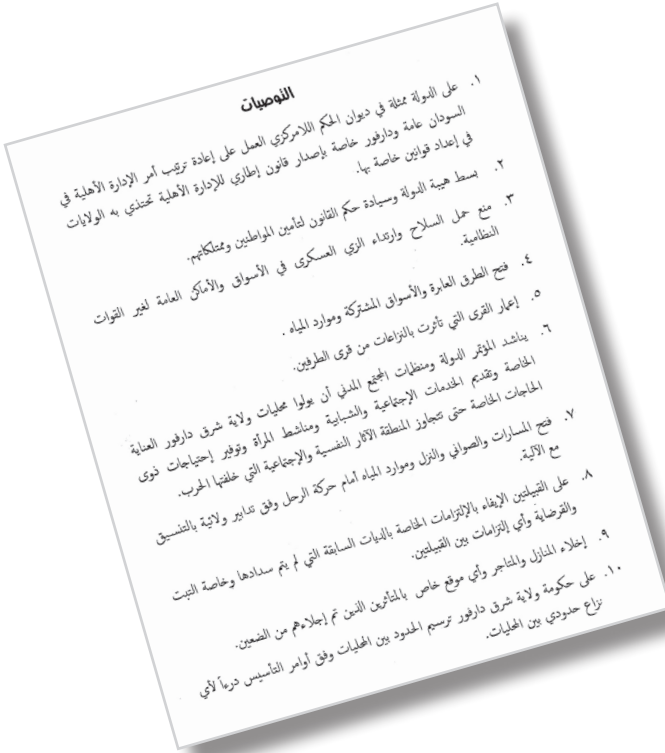 التوصيات
١. على الدولة ممثلة في ديوان الحكم اللامركزي العمل على إعادة ترتيب أمر الإدارة الأهلية في
السودان عامة ودارفور خاصة بإصدار قانون إطاري للإدارة الأهلية تحتذي به الولايات
في إعداد قوانين خاصة بها.
٢. بسط هيبة الدولة وسيادة حكم القانون لتأمين المواطنين وممتلكاتهم.
٣. منع حمل السلاح وارتداء الزي العسكرى في الأسواق والأماكن العامة لغير القوات
النظامية.
٤. فتح الطرق العابرة والأسواق المشتركة وموارد المياه .
٥. إعمار القرى التي تأثرت بالنزاعات من قرى الطرفين.
٦. يناشد المؤتمر الدولة ومنظمات المجتمع المدني أن يولوا محليات ولاية شرق دارفور العناية
الخاصة وتقديم الخدمات الإجتماعية والشبابية ومناشط المرأة وتوفير إحتياجات ذوى
الحاجات الخاصة حتى تتجاوز المنطقة الآثار النفسية والإجتماعية التي خلفتها الحرب.
٧. فتح المسارات والصواني والنزل وموارد المياه أمام حركة الرحل وفق تدابير ولائية بالتنسيق
مع الآلية.
٨. على القبيلتين الإيفاء بالإلتزامات الخاصة بالديات السابقة التي لم يتم سدادها وخاصة التبت
والقرضاية وأي إلتزامات بين القبيلتين.
٩. إخلاء المنازل والمتاجر وأي موقع خاص بالمتأثرين الذين تم إجلاءهم من الضعين.
١٠. على حكومة ولاية شرق دارفور ترسيم الحدود بين المحليات وفق أوامر التأسيس درءاً لأي
نزاع حدودي بين المحليات.